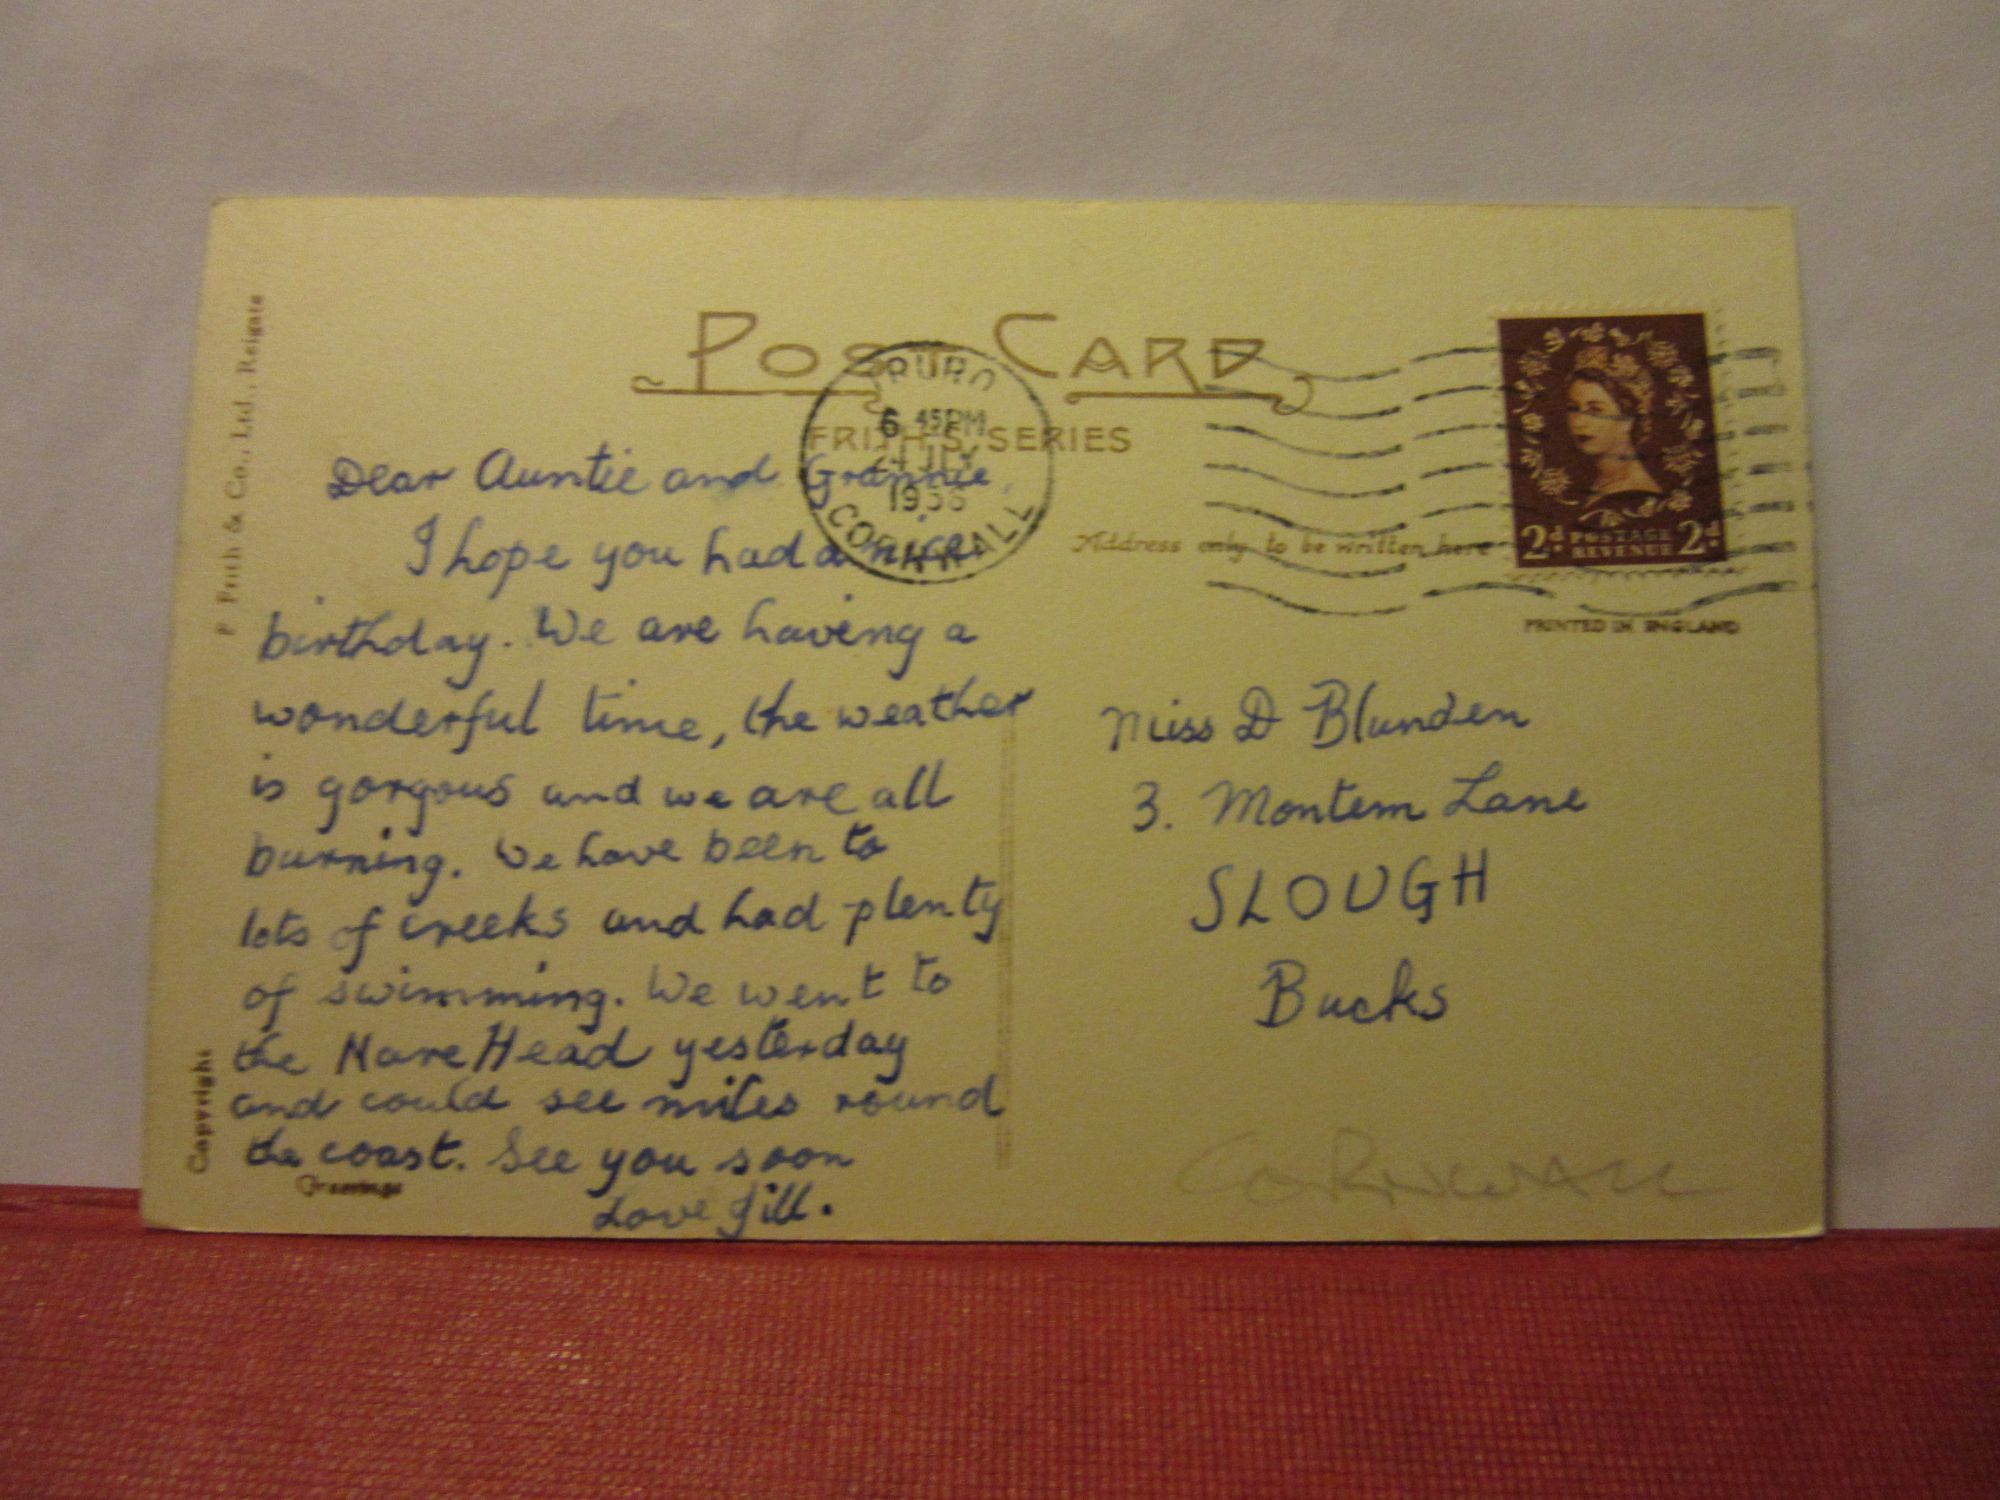 POST CARD
FRITH'S SERIES
TRURO
6 45PM
24 JLY
CORNWALL
Address only to be written here
2d. POSTAGE REVENUE 2d.
PRINTED IN ENGLAND
F Frith & Co., Ltd., Reigate
Copyright
Dear Auntie and Grannie,
I hope you had a nice
birthday. We are having a
wonderful time, the weather
is gorgous and we are all
burning. We have been to
lots of creeks and had plenty
of swimming. We went to
the Nare Head yesterday
and could see miles round
the coast. See you soon
Love Jill.
Miss D Blunden
3. Montem Lane
SLOUGH
Bucks
CORNWALL